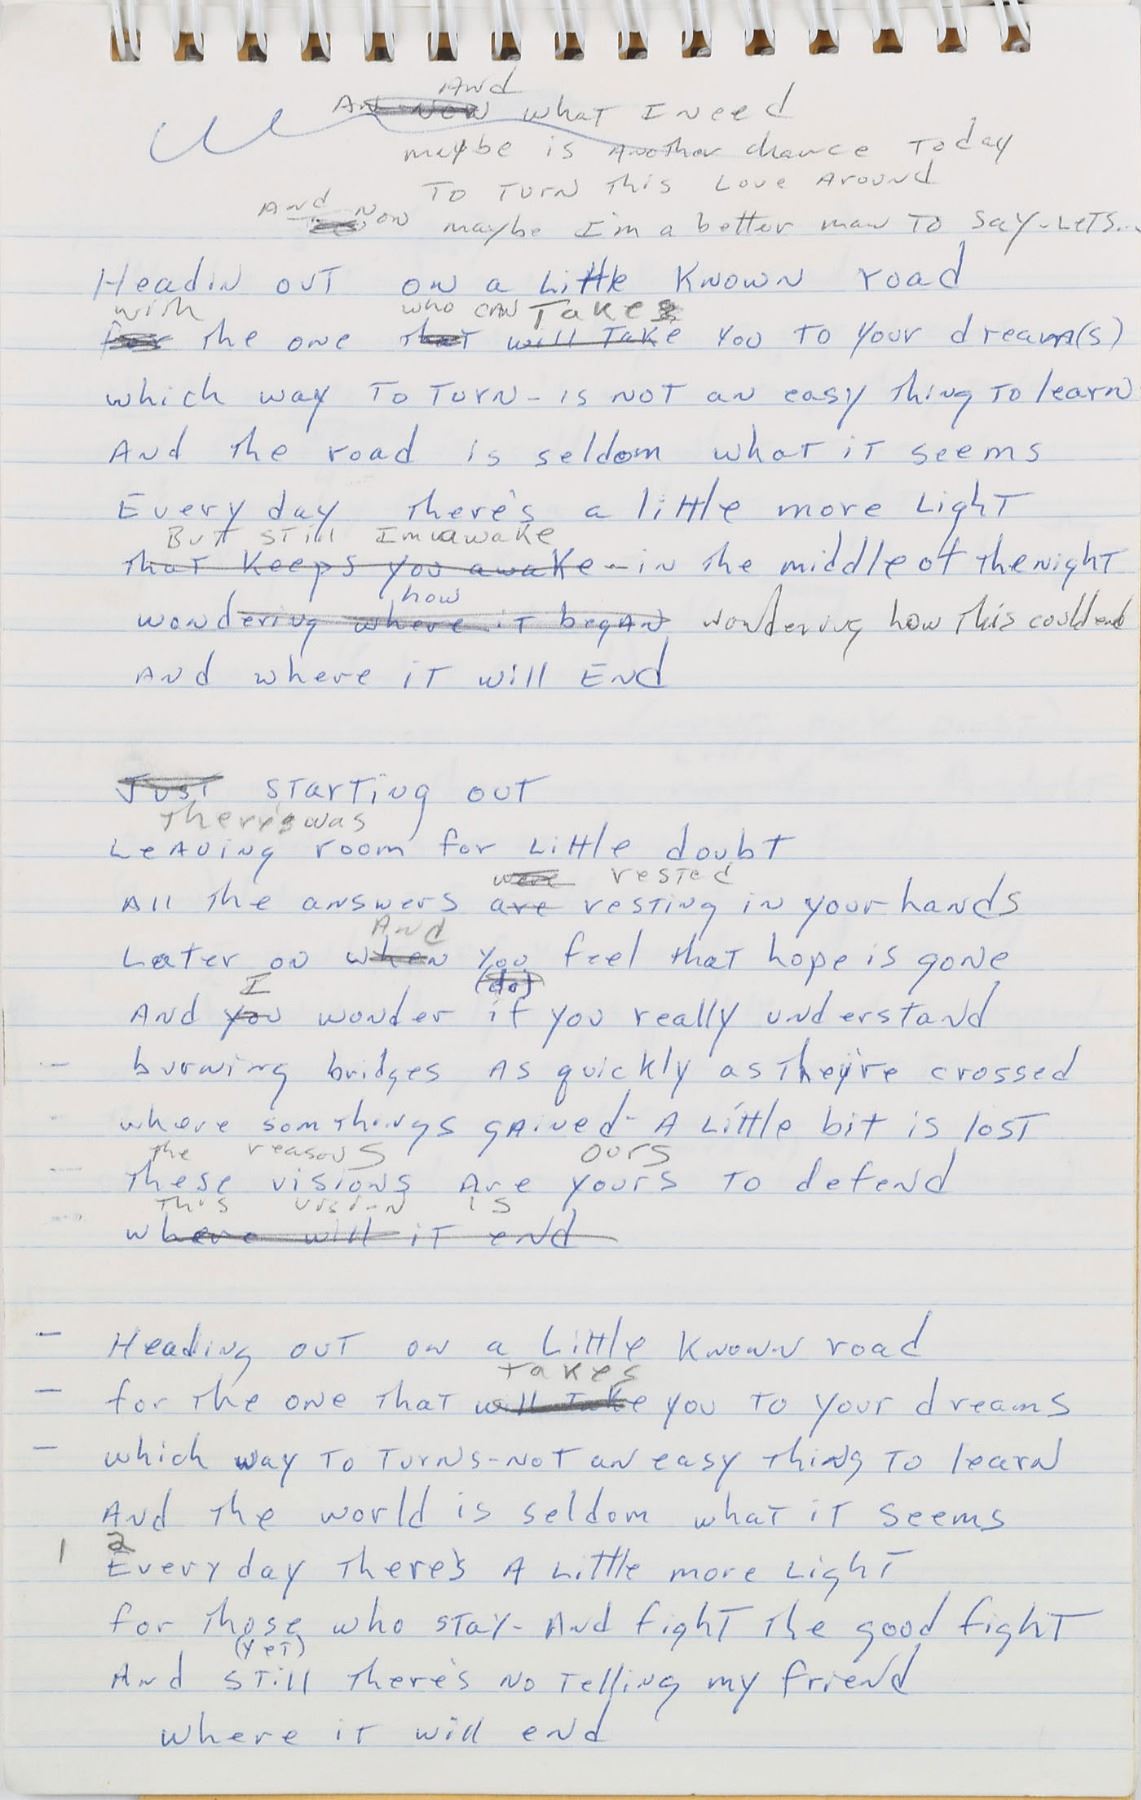 And
An now what I need
maybe is Another chance Today
To Turn this Love Around
And
now maybe I'm a better man To say-Lets...
Headin out on a Little Known road
with who can Takes
for the one that will Take you to your dream(s)
which way To Turn - is not an easy thing To learn
And the road is seldom what it seems
Every day there's a little more Light
But still Im awake
that Keeps you awake - in the middle of the night
how
wondering where it began wondering how this could end
And where it will End
Just starting out
There's was
Leaving room for Little doubt
were rested
All the answers are resting in your hands
And
Later on when you feel that hope is gone
I (do)
And you wonder if you really understand
- burning bridges As quickly as they're crossed
- where somthings gained - A Little bit is lost
the reasons ours
- these visions Are yours to defend
this vision is
- where will it end
- Heading out on a Little Known road
takes
- for the one that will take you to your dreams
- which way To Turns - not an easy thing To learn
And the world is seldom what it seems
1 2
Every day there's A Little more Light
for those who stay - And fight the good fight
(yet)
And still there's no telling my friend
where it will end